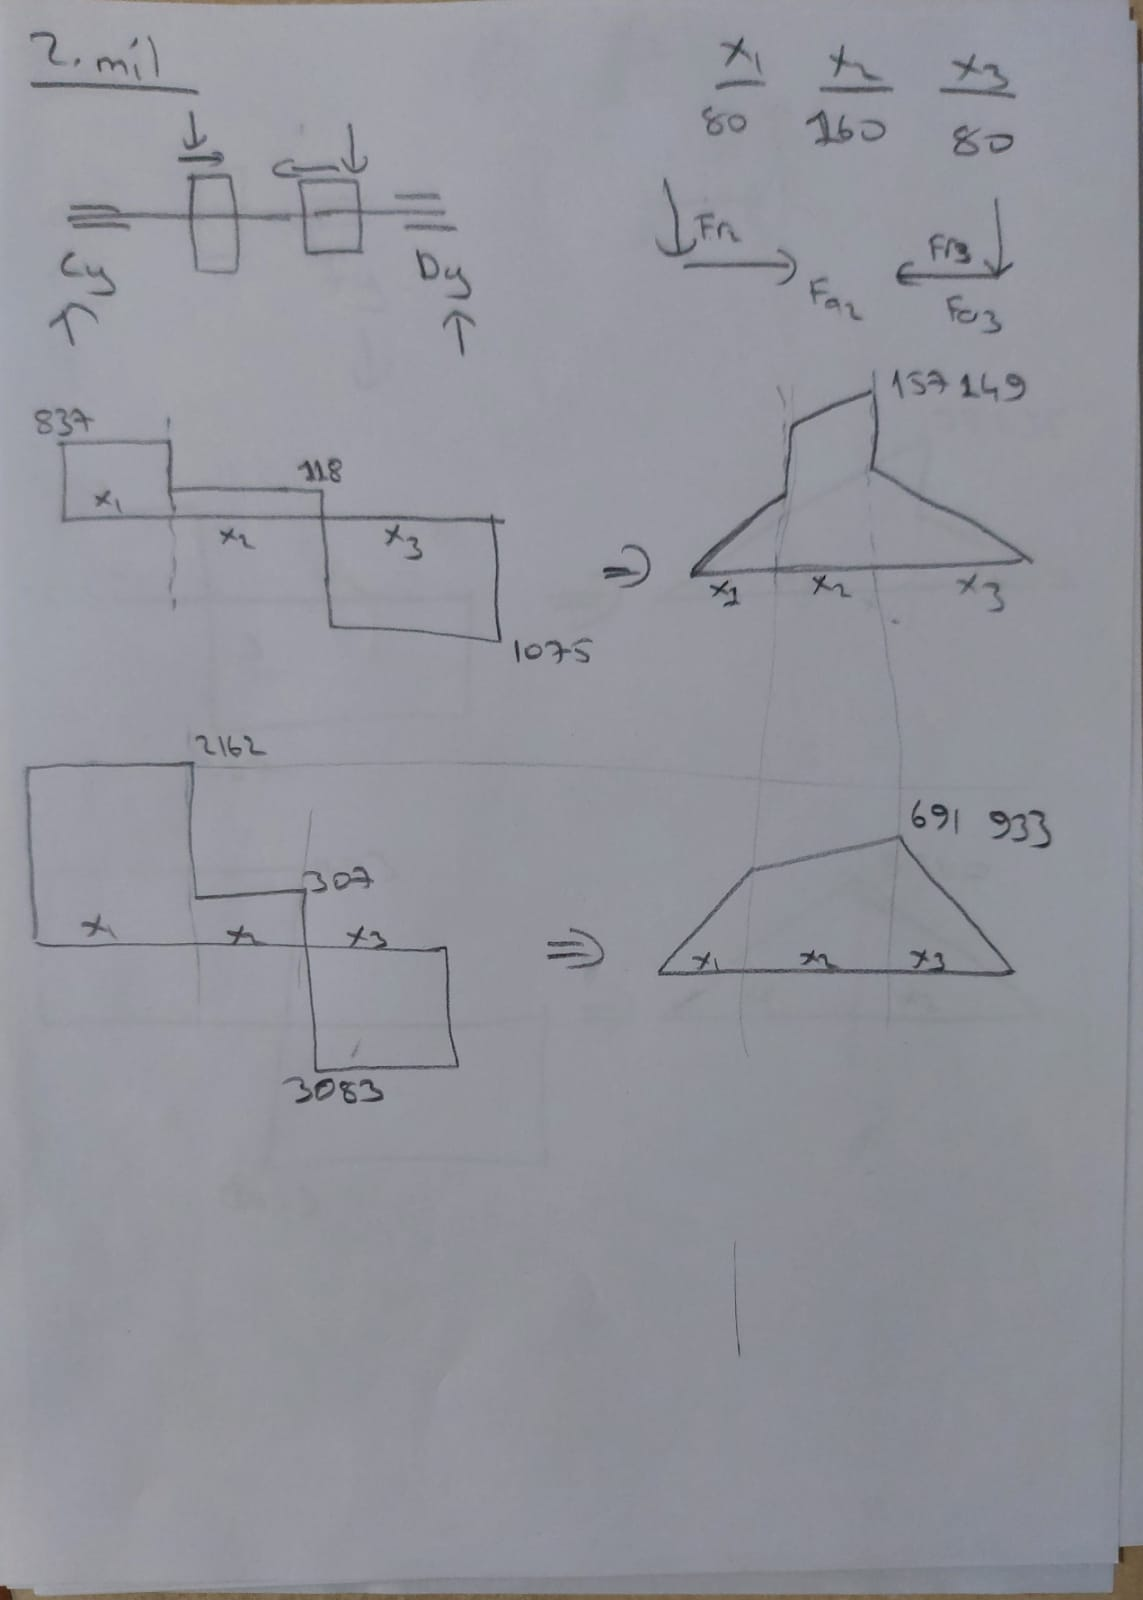 2. mil
x1 x2 x3
80 160 80
Cy Dy
Fr2 Fr3
Fa2 Fa3
837 118
x1 x2 x3
1075
157 149
⇒
x1 x2 x3
2162
307
x1 x2 x3
3083
691 933
⇒
x1 x2 x3